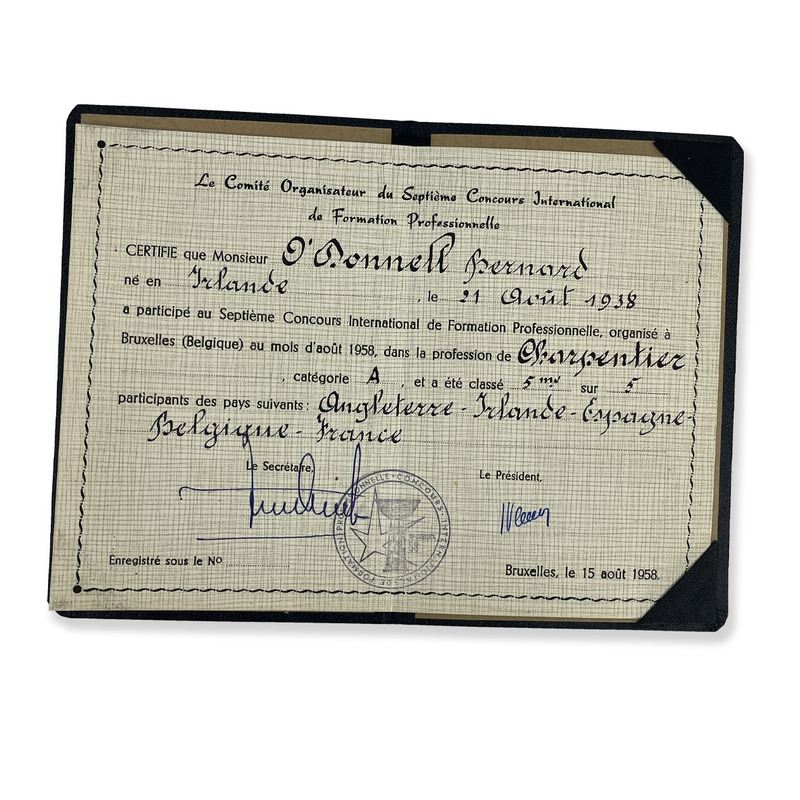 Le Comité Organisateur du Septième Concours International
de Formation Professionnelle
CERTIFIE que Monsieur O'Donnell Bernard
né en Irlande, le 21 Août 1938
a participé au Septième Concours International de Formation Professionnelle, organisé à
Bruxelles (Belgique) au mois d'août 1958, dans la profession de Charpentier
, catégorie A, et a été classé 5me sur 5
participants des pays suivants: Angleterre - Irlande - Espagne-
Belgique - France
Le Secrétaire,
Le Président,
CONCOURS INTERN
Enregistré sous le No
Bruxelles, le 15 août 1958.